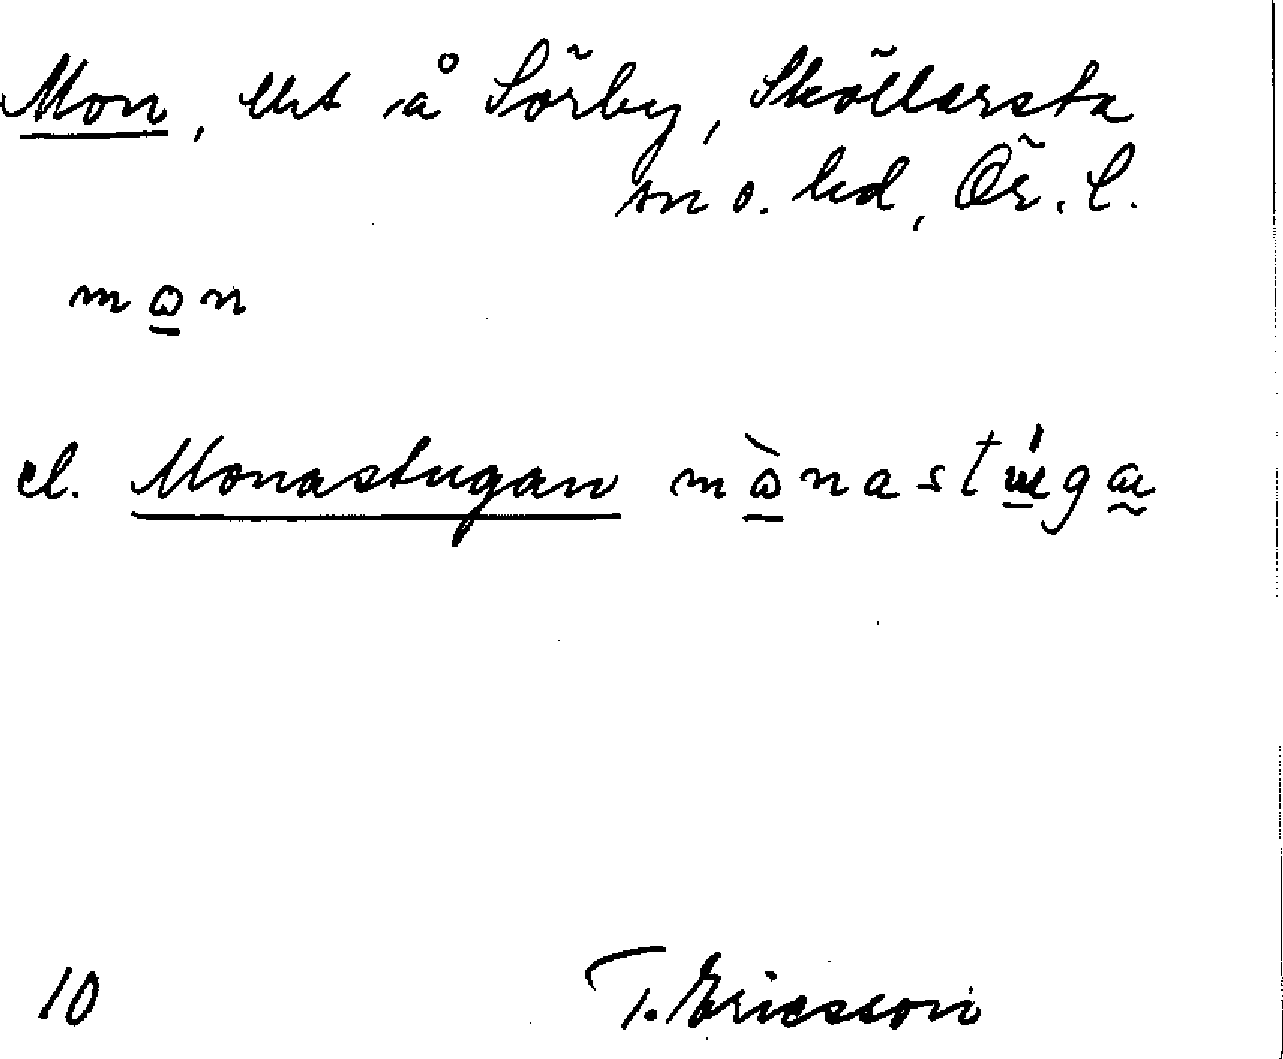 Mon, lht å Sörby, Sköllersta
sn o. hd, Ör. l.
mωn
el. Monastugan mὼnastuga
10 T. Ericsson